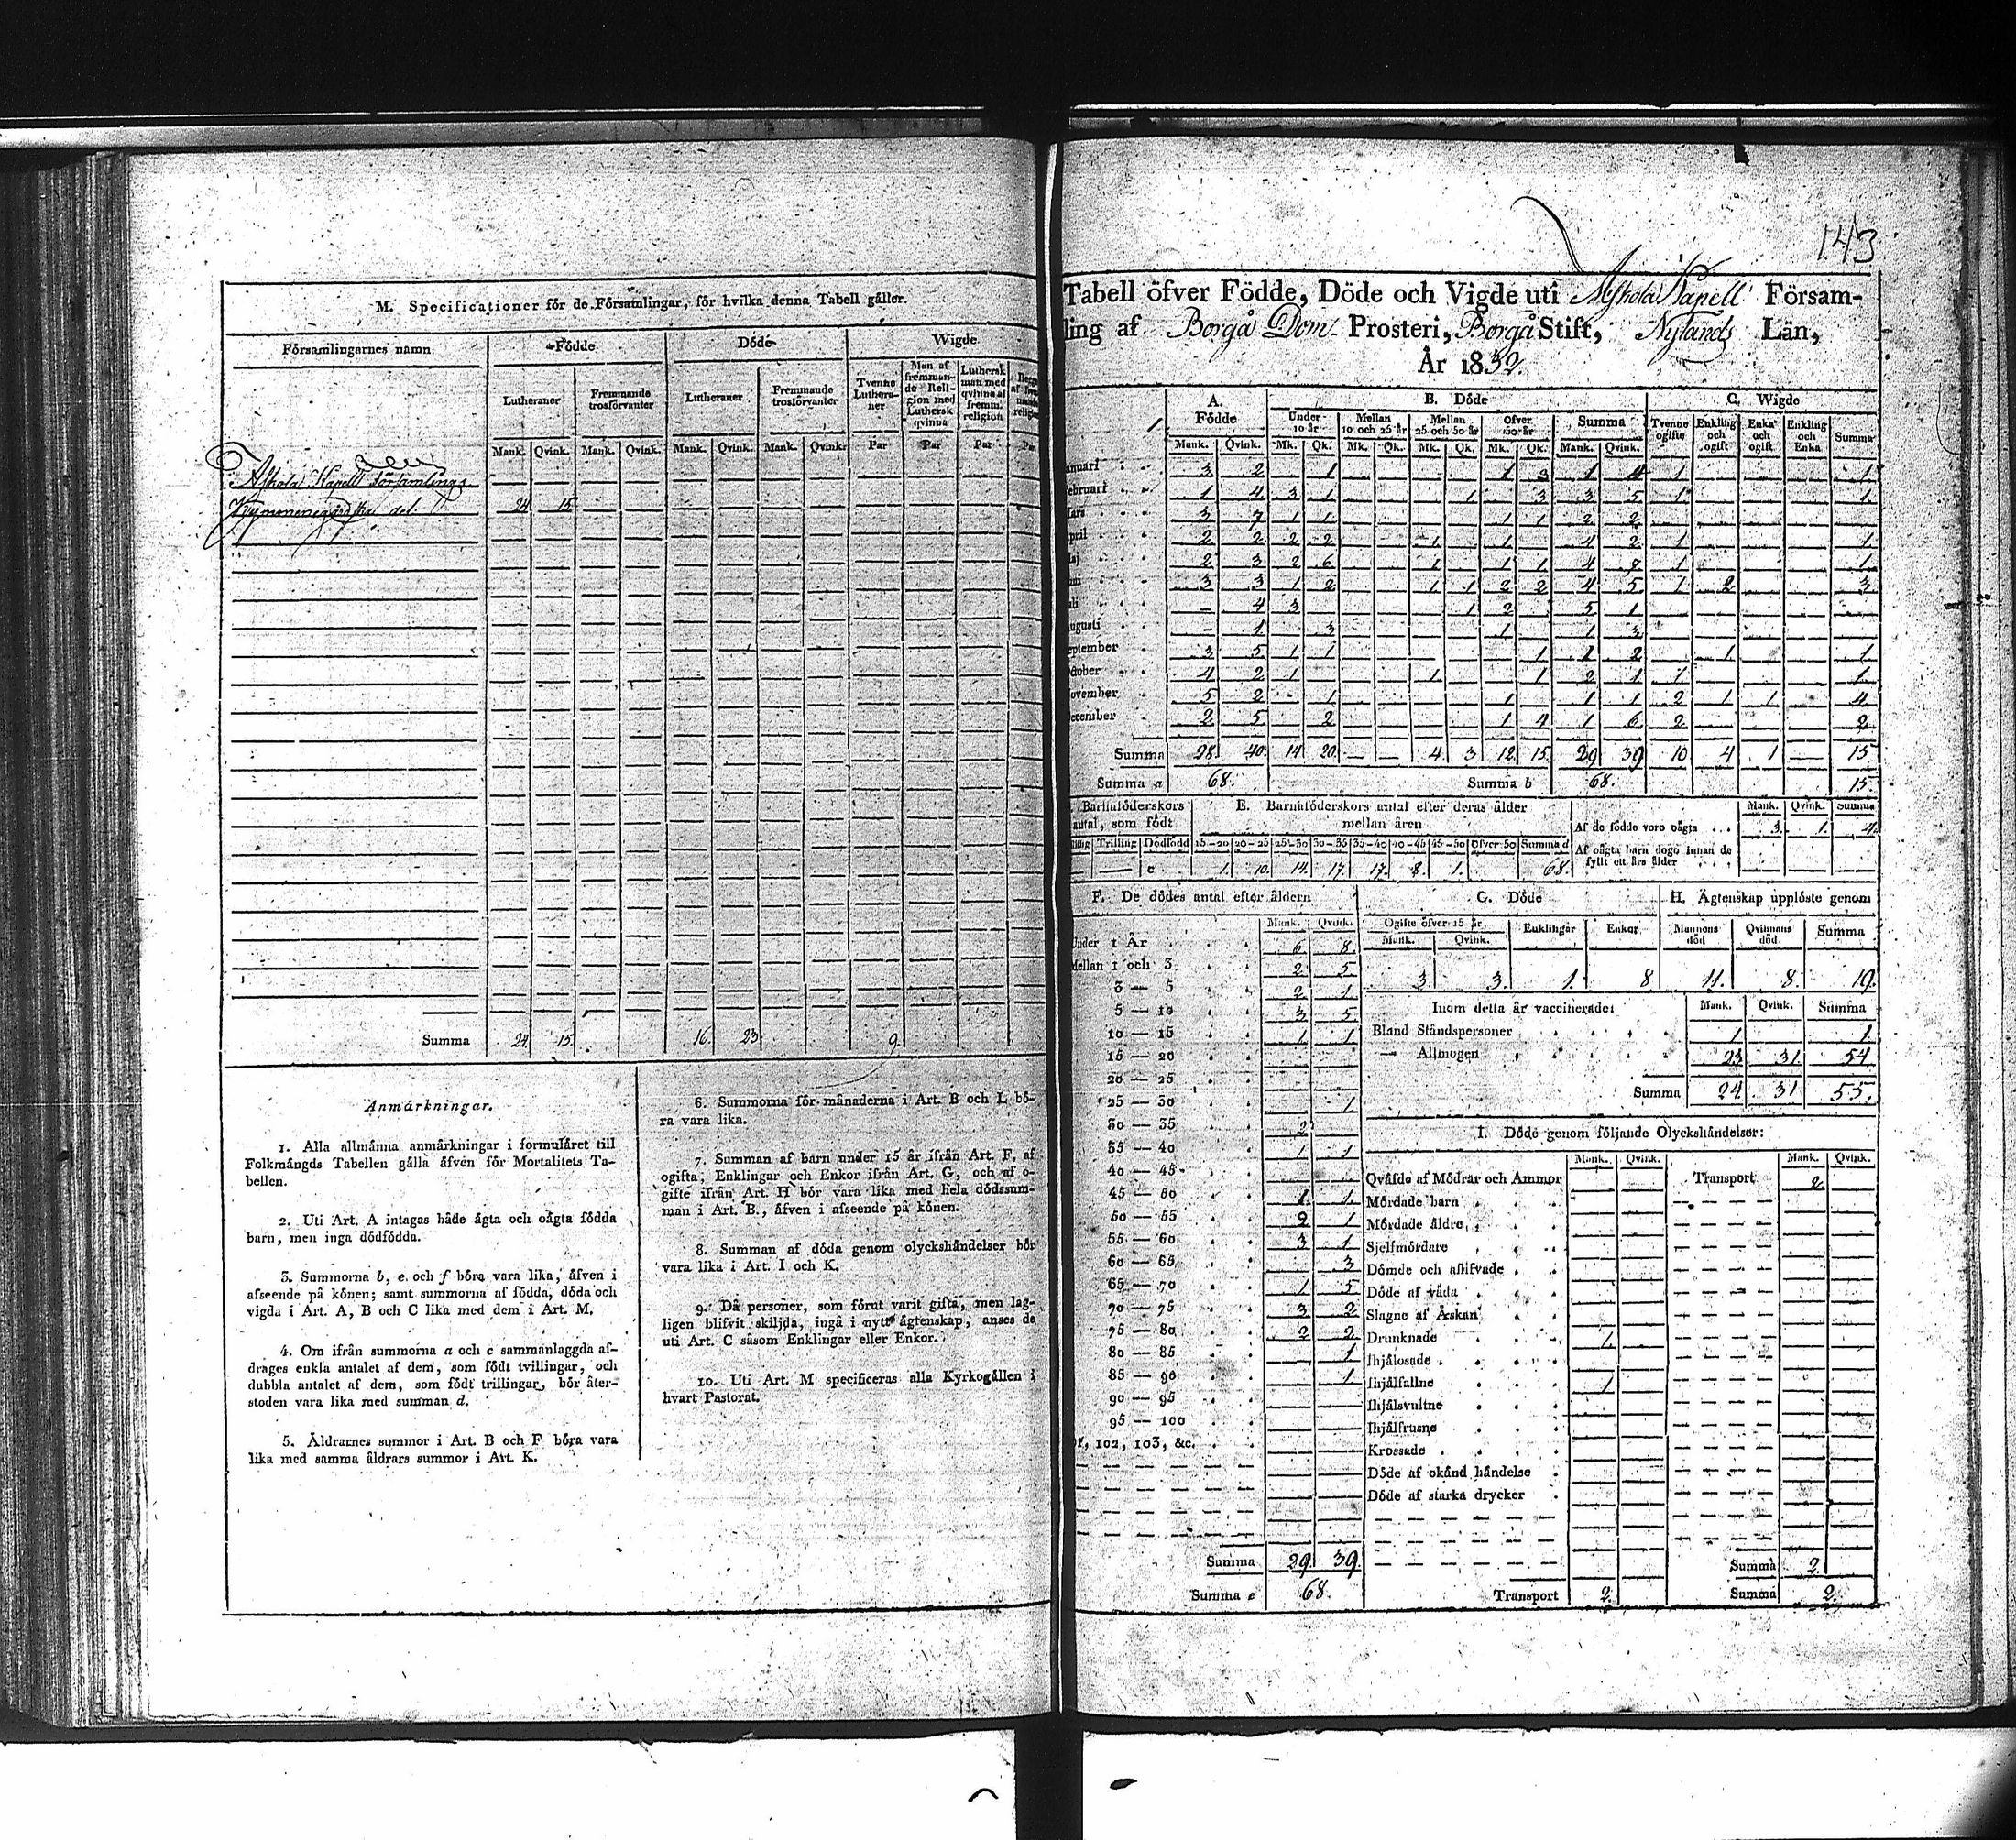 M. Specificationer för de Församlingar, för hvilka denna Tabell gäller.
Församlingarnes namn Födde Döde Wigde
Lutheraner Fremmande trosförvanter Lutheraner Fremmande trosförvanter Tvenne Lutheraner Man af fremmande Religion med Luthersk qvinna Luthersk man med qvinna af fremm. religion
Mank. Qvink. Mank. Qvink. Mank. Qvink. Mank. Qvink. Par Par Par Par
Askola Kapell Församlings
Kymmenegårdska del. 24 15
Summa 24. 15. 16. 23. 9.
Anmärkningar.
1. Alla allmänna anmärkningar i formuläret till
Folkmängds Tabellen gälla äfven för Mortalitets Ta-
bellen.
2. Uti Art. A intagas både ägta och oägta födda
barn, men inga dödfödda.
3. Summorna b, e. och f böra vara lika, äfven i
afseende på könen; samt summorna af födda, döda och
vigda i Art. A, B och C lika med dem i Art. M.
4. Om ifrån summorna a och c sammanlaggda af-
drages enkla antalet af dem, som födt tvillingar, och
dubbla antalet af dem, som födt trillingar, bör åter-
stoden vara lika med summan d.
5. Äldrarnes summor i Art. B och F böra vara
lika med samma åldrars summor i Art. K.
6. Summorna för månaderna i Art. B och L bö-
ra vara lika.
7. Summan af barn under 15 år ifrån Art. F, af
ogifta, Enklingar och Enkor ifrån Art. G, och af o-
gifte ifrån Art. H bör vara lika med hela dödssum-
man i Art. B., äfven i afseende på könen.
8. Summan af döda genom olyckshändelser bör
vara lika i Art. I och K.
9. Då personer, som förut varit gifta, men lag-
ligen blifvit skiljda, ingå i nytt ägtenskap, anses de
uti Art. C såsom Enklingar eller Enkor.
10. Uti Art. M specificeras alla Kyrkogällen i
hvart Pastorat.
143
Tabell öfver Födde, Döde och Vigde uti Askola Kapell Försam-
ling af Borgå Dom Prosteri, Borgå Stift, Nylands Län,
År 1832.
A. Födde B. Döde C. Wigde
Under 10 år Mellan 10 och 25 år Mellan 25 och 50 år Öfver 50 år Summa Tvenne ogifte Enkling och ogift Enka och ogift Enkling och Enka Summa
Mank. Qvink. Mk. Qk. Mk. Qk. Mk. Qk. Mk. Qk. Mank. Qvink.
anuari 3 2 1 1 3 1 4 1 1
ebruari 1 4 3 1 1 3 3 5 1 1
ars 3 7 1 1 1 1 2 2
pril 2 2 2 2 1 1 4 2 1 1
aj 2 3 2 6 1 1 1 4 8 1 1
ni 3 3 1 2 1 1 2 2 4 5 1 2 3
li - 4 3 1 2 5 1
ugusti - 1 3 1 1 3
eptember 3 5 1 1 1 1 2 1 1
ktober 4 2 1 1 1 2 1 1 1
ovember 5 2 1 1 1 1 2 1 1 4
ecember 2 5 2 1 4 1 6 2 2
Summa 28. 40. 14 20. — — 4. 3 12. 15. 29 39 10 4 1 — 15
Summa a 68. Summa b 68. 15.
Barnaföderskors antal, som födt
E. Barnaföderskors antal efter deras ålder
mellan åren
Trilling Dödfödd 15-20 20-25 25-30 30-35 35-40 40-45 45-50 Öfver 50 Summa d
— — c 1. 10. 14. 17. 17. 8. 1. 68.
Mank. Qvink. Summa
Af de födde voro oägta . . . 3. 1. 4.
Af oägta barn dogo innan de
fyllt ett års ålder . . .
F. De dödes antal efter åldern
Mank. Qvink.
Under 1 År 6 8.
Mellan 1 och 3 2 5
3 — 5 2 1
5 — 10 3 5
10 — 15 1 1
15 — 20
20 — 25
25 — 30 1
30 — 35 2
35 — 40 1 1
40 — 45
45 — 50 1 1
50 — 55 2 1
55 — 60 3 1
60 — 65 3
65 — 70 1 5
70 — 75 3 2
75 — 80 2 2
80 — 85 1
85 — 90 1
90 — 95
95 — 100
101, 102, 103, &c.
Summa 29. 39.
Summa e 68.
G. Döde H. Ägtenskap upplöste genom
Ogifte öfver 15 år Enklingar Enkor Mannens död Qvinnans död. Summa
Mank. Qvink.
3. 3. 1. 8 11. 8. 19.
Inom detta år vaccinerade: Mank. Qvink. Summa
Bland Ståndspersoner 1 1.
— Allmogen 23 31. 54
Summa 24. 31 55.
I. Döde genom följande Olyckshändelser:
Mank. Qvink. Mank. Qvink.
Qväfde af Mödrar och Ammor Transport 2.
Mördade barn
Mördade äldre
Sjelfmördare
Dömde och aflifvade
Döde af våda
Slagne af Åskan
Drunknade 1.
Ihjälosade
Ihjälfallne 1
Ihjälsvultne
Ihjälfrusne
Krossade
Döde af okänd händelse
Döde af starka drycker
Summa 2.
Transport 2. Summa 2.